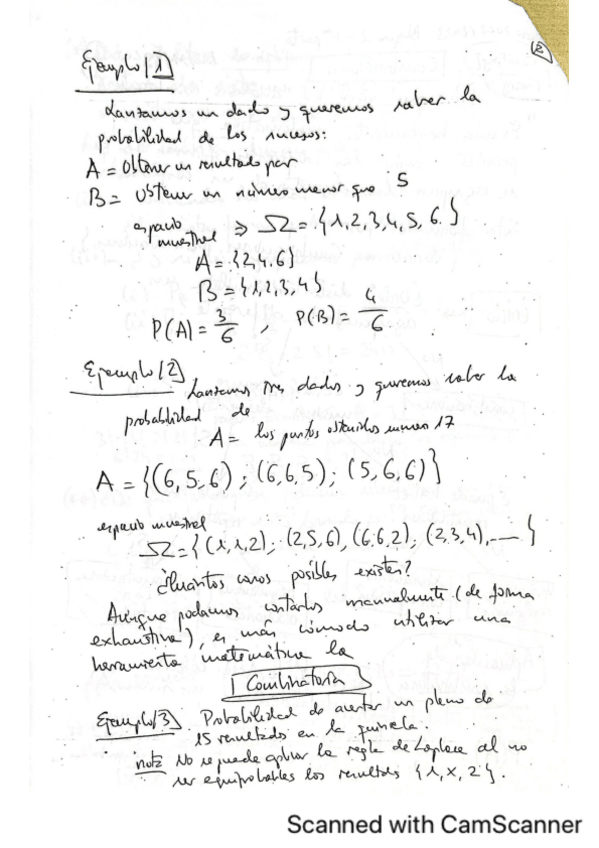 2
Ejemplo/1
Lanzamos un dado y queremos saber la
probabilidad de los sucesos:
A = Obtener un resultado par
B = Obtener un número menor que 5
espacio muestral ⇒ Ω = {1,2,3,4,5,6.}
A = {2,4,6}
B = {1,2,3,4}
P(A) = 3/6 , P(B) = 4/6
Ejemplo/2)
Lanzamos tres dados y queremos saber la
probabilidad de
A = los puntos obtenidos sumen 17
A = {(6,5,6) ; (6,6,5) ; (5,6,6)}
espacio muestral
Ω = {(1,1,2); (2,5,6), (6,6,2); (2,3,4),...}
¿Cuántos casos posibles existen?
Aunque podamos contarlos manualmente (de forma
exhaustiva), es más cómodo utilizar una
herramienta matemática la
Combinatoria
Ejemplo/3) Probabilidad de acertar un pleno de
15 resultados en la quiniela.
nota No se puede aplicar la regla de Laplace al no
ser equiprobables los resultados {1,x,2}.
Scanned with CamScanner